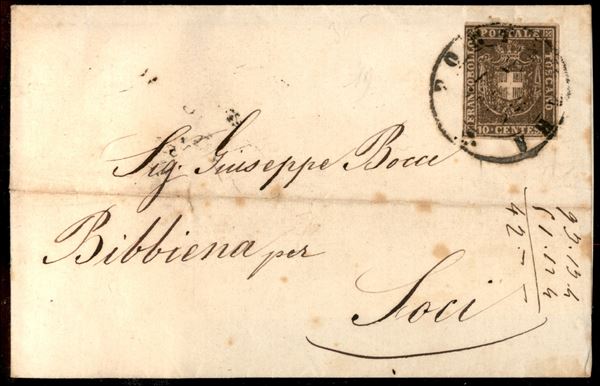 FRANCOBOLLO POSTALE TOSCANO
10 CENTES
PO
Sig. Giuseppe Bocci
Bibbiena per
Soci
42